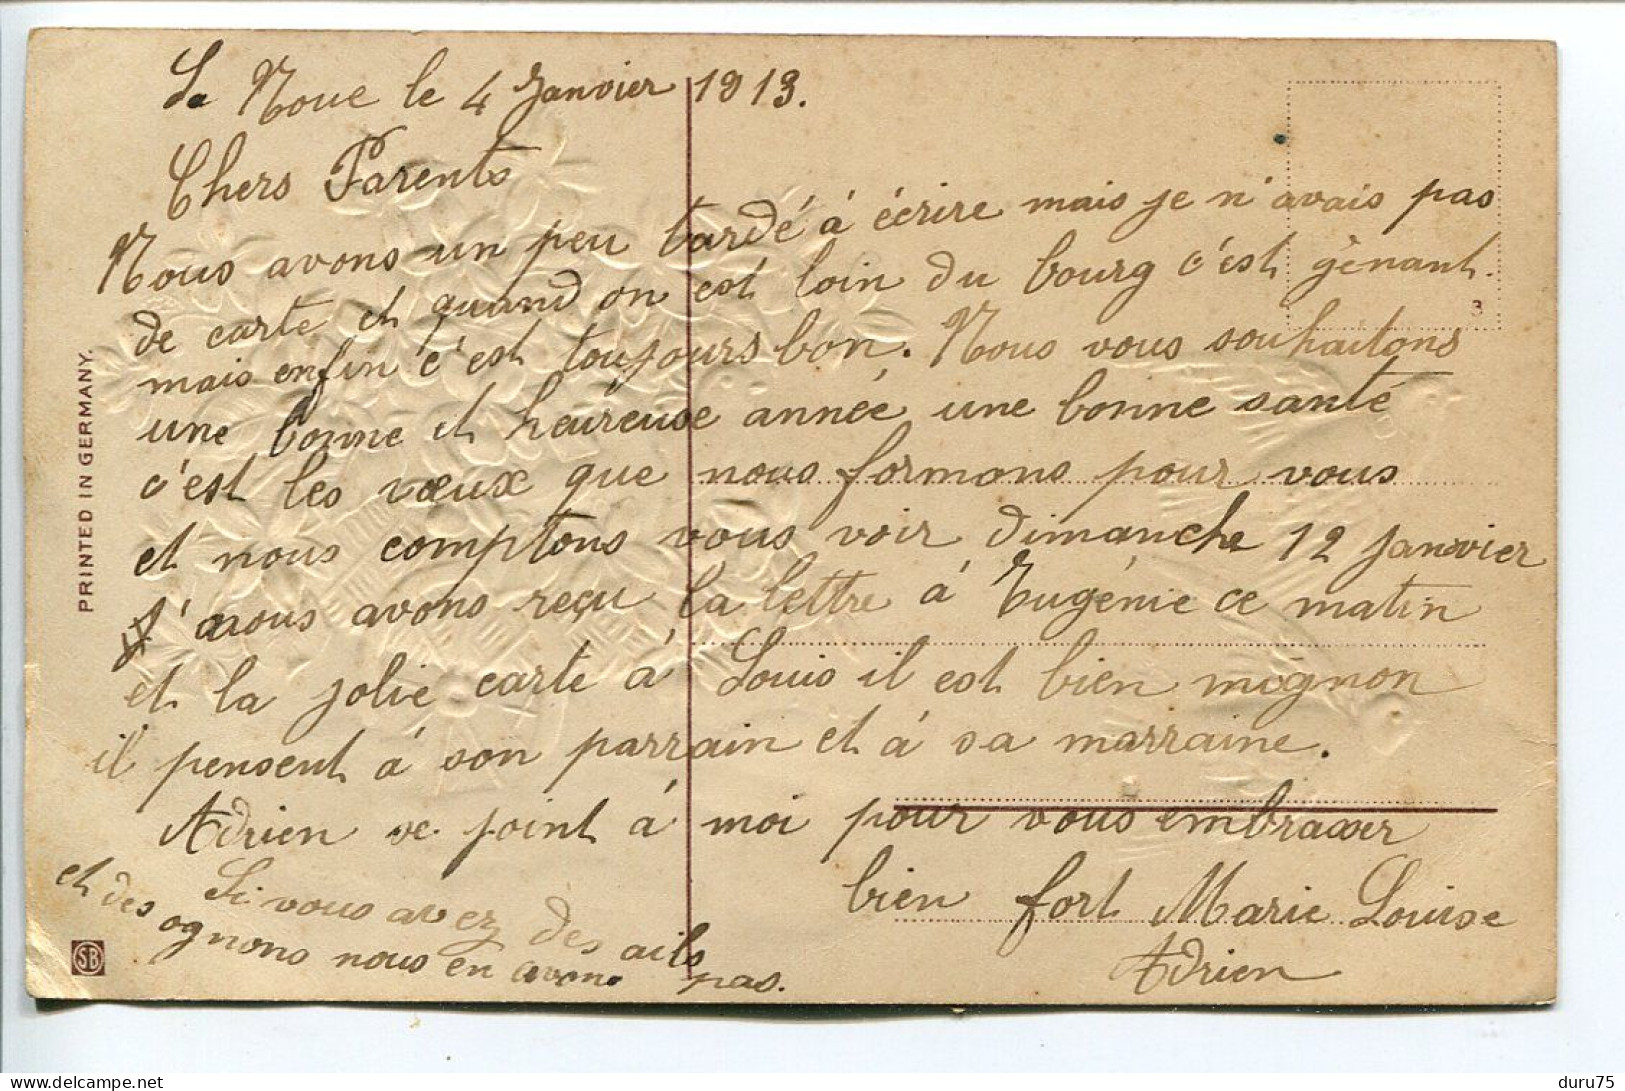 La Noue le 4 Janvier 1913.
Chers Parents
Nous avons un peu tardé à écrire mais je n'avais pas
de carte et quand on est loin du bourg c'est gênant.
mais enfin c'est toujours bon. Nous vous souhaitons
une bonne et heureuse année une bonne santé
c'est les vœux que nous formons pour vous
et nous comptons vous voir dimanche 12 janvier
nous avons reçu la lettre à Eugénie ce matin
et la jolie carte à Louis il est bien mignon
il pensent à son parrain et à sa marraine.
Adrien se joint à moi pour vous embrasser
bien fort Marie Louise
Adrien
Si vous avez des ails
et des ognons nous en avons pas.
PRINTED IN GERMANY.
SB
3
duru75